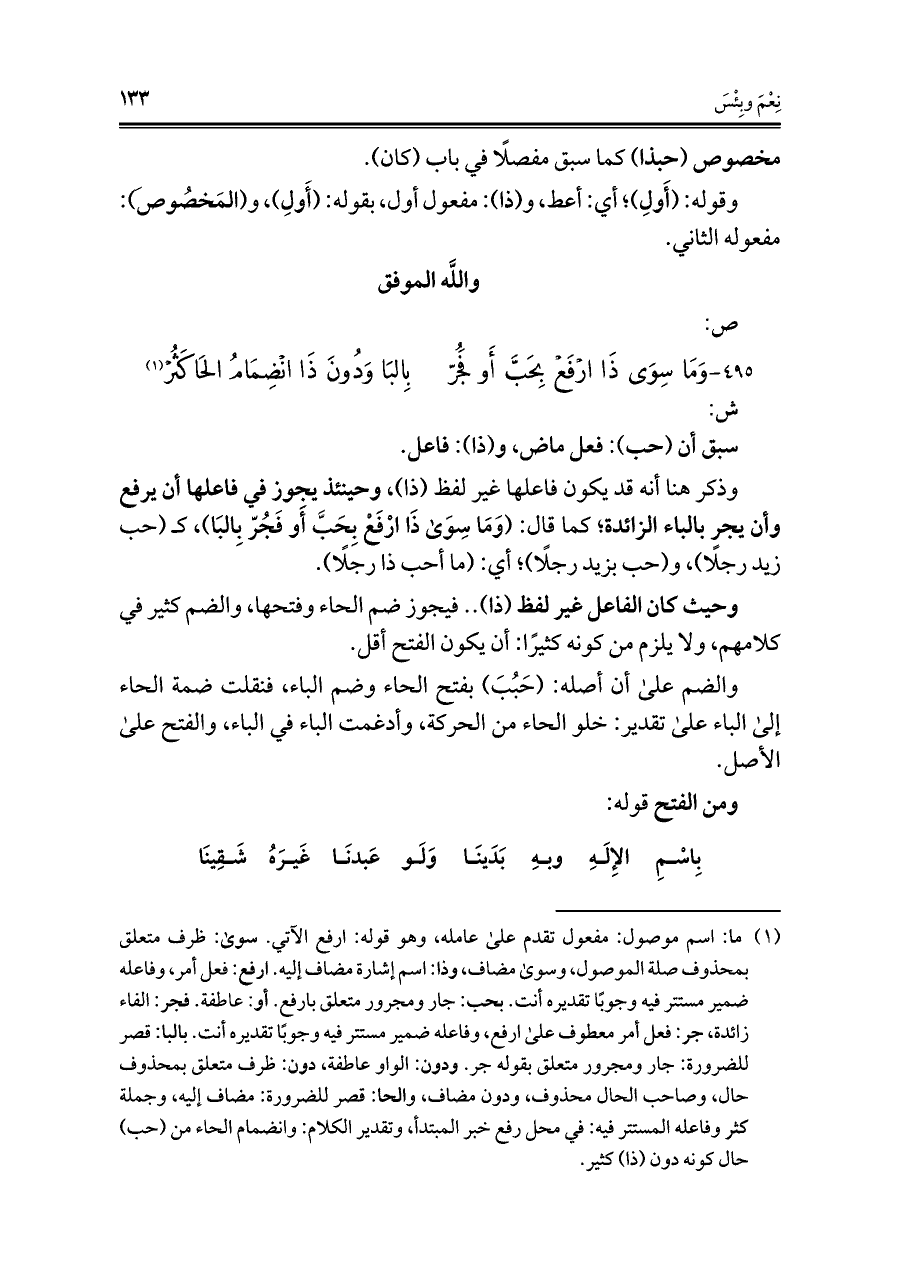 نِعْمَ وبِئْسَ ١٣٣
مخصوص (حبذا) كما سبق مفصلًا في باب (كان).
وقوله: (أَولِ)؛ أي: أعط، و(ذا): مفعول أول، بقوله: (أَولِ)، و(المَخصُوصَ):
مفعوله الثاني.
واللَّه الموفق
ص:
٤٩٥-وَمَا سِوَى ذَا ارْفَعْ بِحَبَّ أَو فَجُرّ بِالبَا وَدُونَ ذَا انْضِمَامُ الحَا كَثُرْ(١)
ش:
سبق أن (حب): فعل ماض، و(ذا): فاعل.
وذكر هنا أنه قد يكون فاعلها غير لفظ (ذا)، وحينئذ يجوز في فاعلها أن يرفع
وأن يجر بالباء الزائدة؛ كما قال: (وَمَا سِوَىٰ ذَا ارْفَعْ بِحَبَّ أَو فَجُرّ بِالبَا)، كـ (حب
زيد رجلًا)، و(حب بزيد رجلًا)؛ أي: (ما أحب ذا رجلًا).
وحيث كان الفاعل غير لفظ (ذا).. فيجوز ضم الحاء وفتحها، والضم كثير في
كلامهم، ولا يلزم من كونه كثيرًا: أن يكون الفتح أقل.
والضم علىٰ أن أصله: (حَبُبَ) بفتح الحاء وضم الباء، فنقلت ضمة الحاء
إلىٰ الباء علىٰ تقدير: خلو الحاء من الحركة، وأدغمت الباء في الباء، والفتح علىٰ
الأصل.
ومن الفتح قوله:
بِاسْـمِ الإِلَـهِ وبـهِ بَدَينَـا وَلَـو عَبدنَـا غَيـرَهُ شَـقِينَا
(١) ما: اسم موصول: مفعول تقدم علىٰ عامله، وهو قوله: ارفع الآتي. سوىٰ: ظرف متعلق
بمحذوف صلة الموصول، وسوىٰ مضاف، وذا: اسم إشارة مضاف إليه. ارفع: فعل أمر، وفاعله
ضمير مستتر فيه وجوبًا تقديره أنت. بحب: جار ومجرور متعلق بارفع. أو: عاطفة. فجر: الفاء
زائدة، جر: فعل أمر معطوف علىٰ ارفع، وفاعله ضمير مستتر فيه وجوبًا تقديره أنت. بالبا: قصر
للضرورة: جار ومجرور متعلق بقوله جر. ودون: الواو عاطفة، دون: ظرف متعلق بمحذوف
حال، وصاحب الحال محذوف، ودون مضاف، والحا: قصر للضرورة: مضاف إليه، وجملة
كثر وفاعله المستتر فيه: في محل رفع خبر المبتدأ، وتقدير الكلام: وانضمام الحاء من (حب)
حال كونه دون (ذا) كثير.